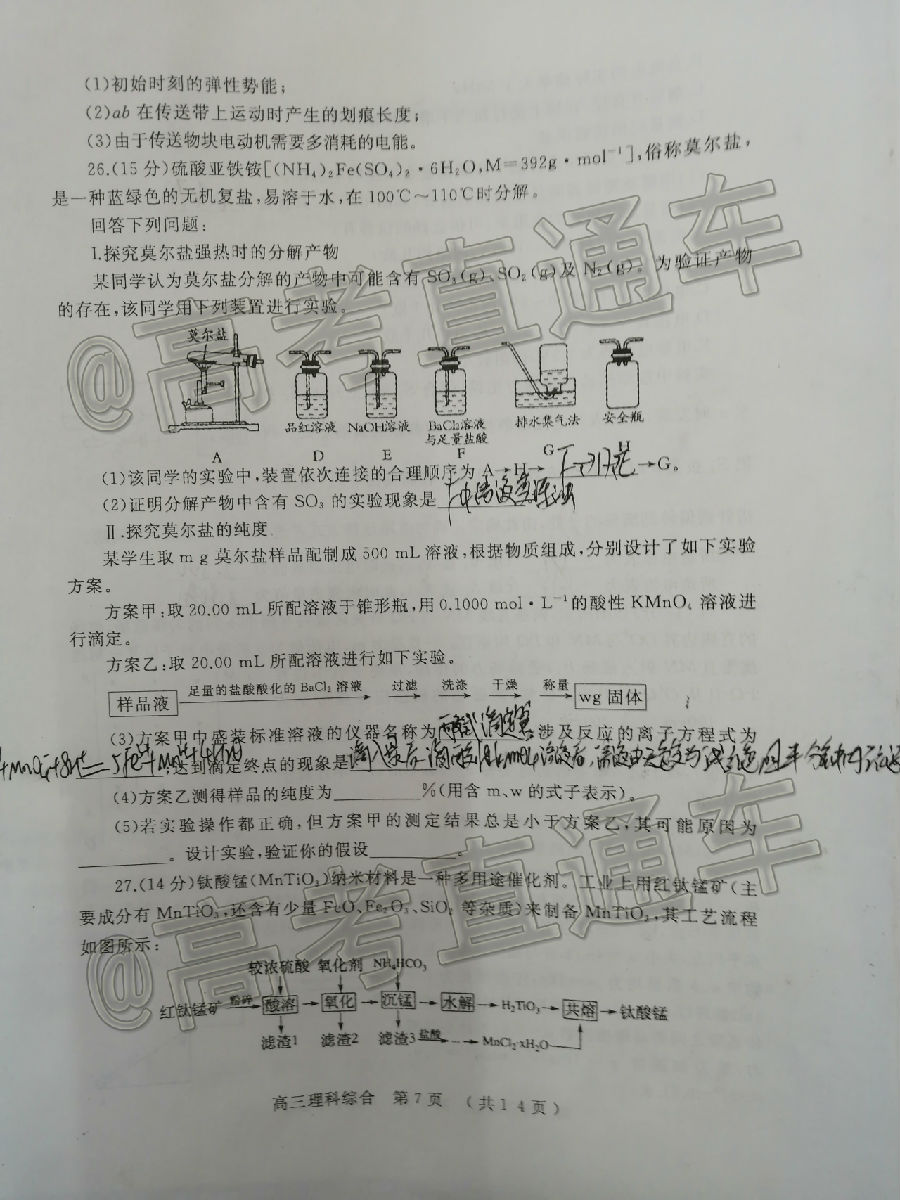 (1)初始时刻的弹性势能；
(2)ab在传送带上运动时产生的划痕长度；
(3)由于传送物块电动机需要多消耗的电能。
26.(15分)硫酸亚铁铵[(NH₄)₂Fe(SO₄)₂·6H₂O,M=392g·mol⁻¹],俗称莫尔盐，
是一种蓝绿色的无机复盐,易溶于水,在100℃～110℃时分解。
回答下列问题：
Ⅰ.探究莫尔盐强热时的分解产物
某同学认为莫尔盐分解的产物中可能含有SO₃(g)、SO₂(g)及N₂(g)。为验证产物
的存在,该同学用下列装置进行实验。
莫尔盐
品红溶液 NaOH溶液 BaCl₂溶液与足量盐酸 排水集气法 安全瓶
A D E F G
(1)该同学的实验中,装置依次连接的合理顺序为A→H→ →G。
(2)证明分解产物中含有SO₃的实验现象是
Ⅱ.探究莫尔盐的纯度
某学生取m g莫尔盐样品配制成500 mL溶液,根据物质组成,分别设计了如下实验
方案。
方案甲:取20.00 mL所配溶液于锥形瓶,用0.1000 mol·L⁻¹的酸性KMnO₄溶液进
行滴定。
方案乙:取20.00 mL所配溶液进行如下实验。
样品液 足量的盐酸酸化的BaCl₂溶液 过滤 洗涤 干燥 称量 wg固体
(3)方案甲中盛装标准溶液的仪器名称为 酸式滴定管 ,涉及反应的离子方程式为
,达到滴定终点的现象是
(4)方案乙测得样品的纯度为________%(用含m、w的式子表示)。
(5)若实验操作都正确,但方案甲的测定结果总是小于方案乙,其可能原因为
________。设计实验,验证你的假设________。
27.(14分)钛酸锰(MnTiO₃)纳米材料是一种多用途催化剂。工业上用红钛锰矿(主
要成分有MnTiO₃,还含有少量FeO、Fe₂O₃、SiO₂等杂质)来制备MnTiO₃,其工艺流程
如图所示：
较浓硫酸 氧化剂 NH₄HCO₃
红钛锰矿 粉碎 酸溶 氧化 沉锰 水解 H₂TiO₃ 共熔 钛酸锰
滤渣1 滤渣2 滤渣3 盐酸 … MnCl₂·xH₂O
高三理科综合 第7页 (共14页)
@高考直通车
@高考直通车